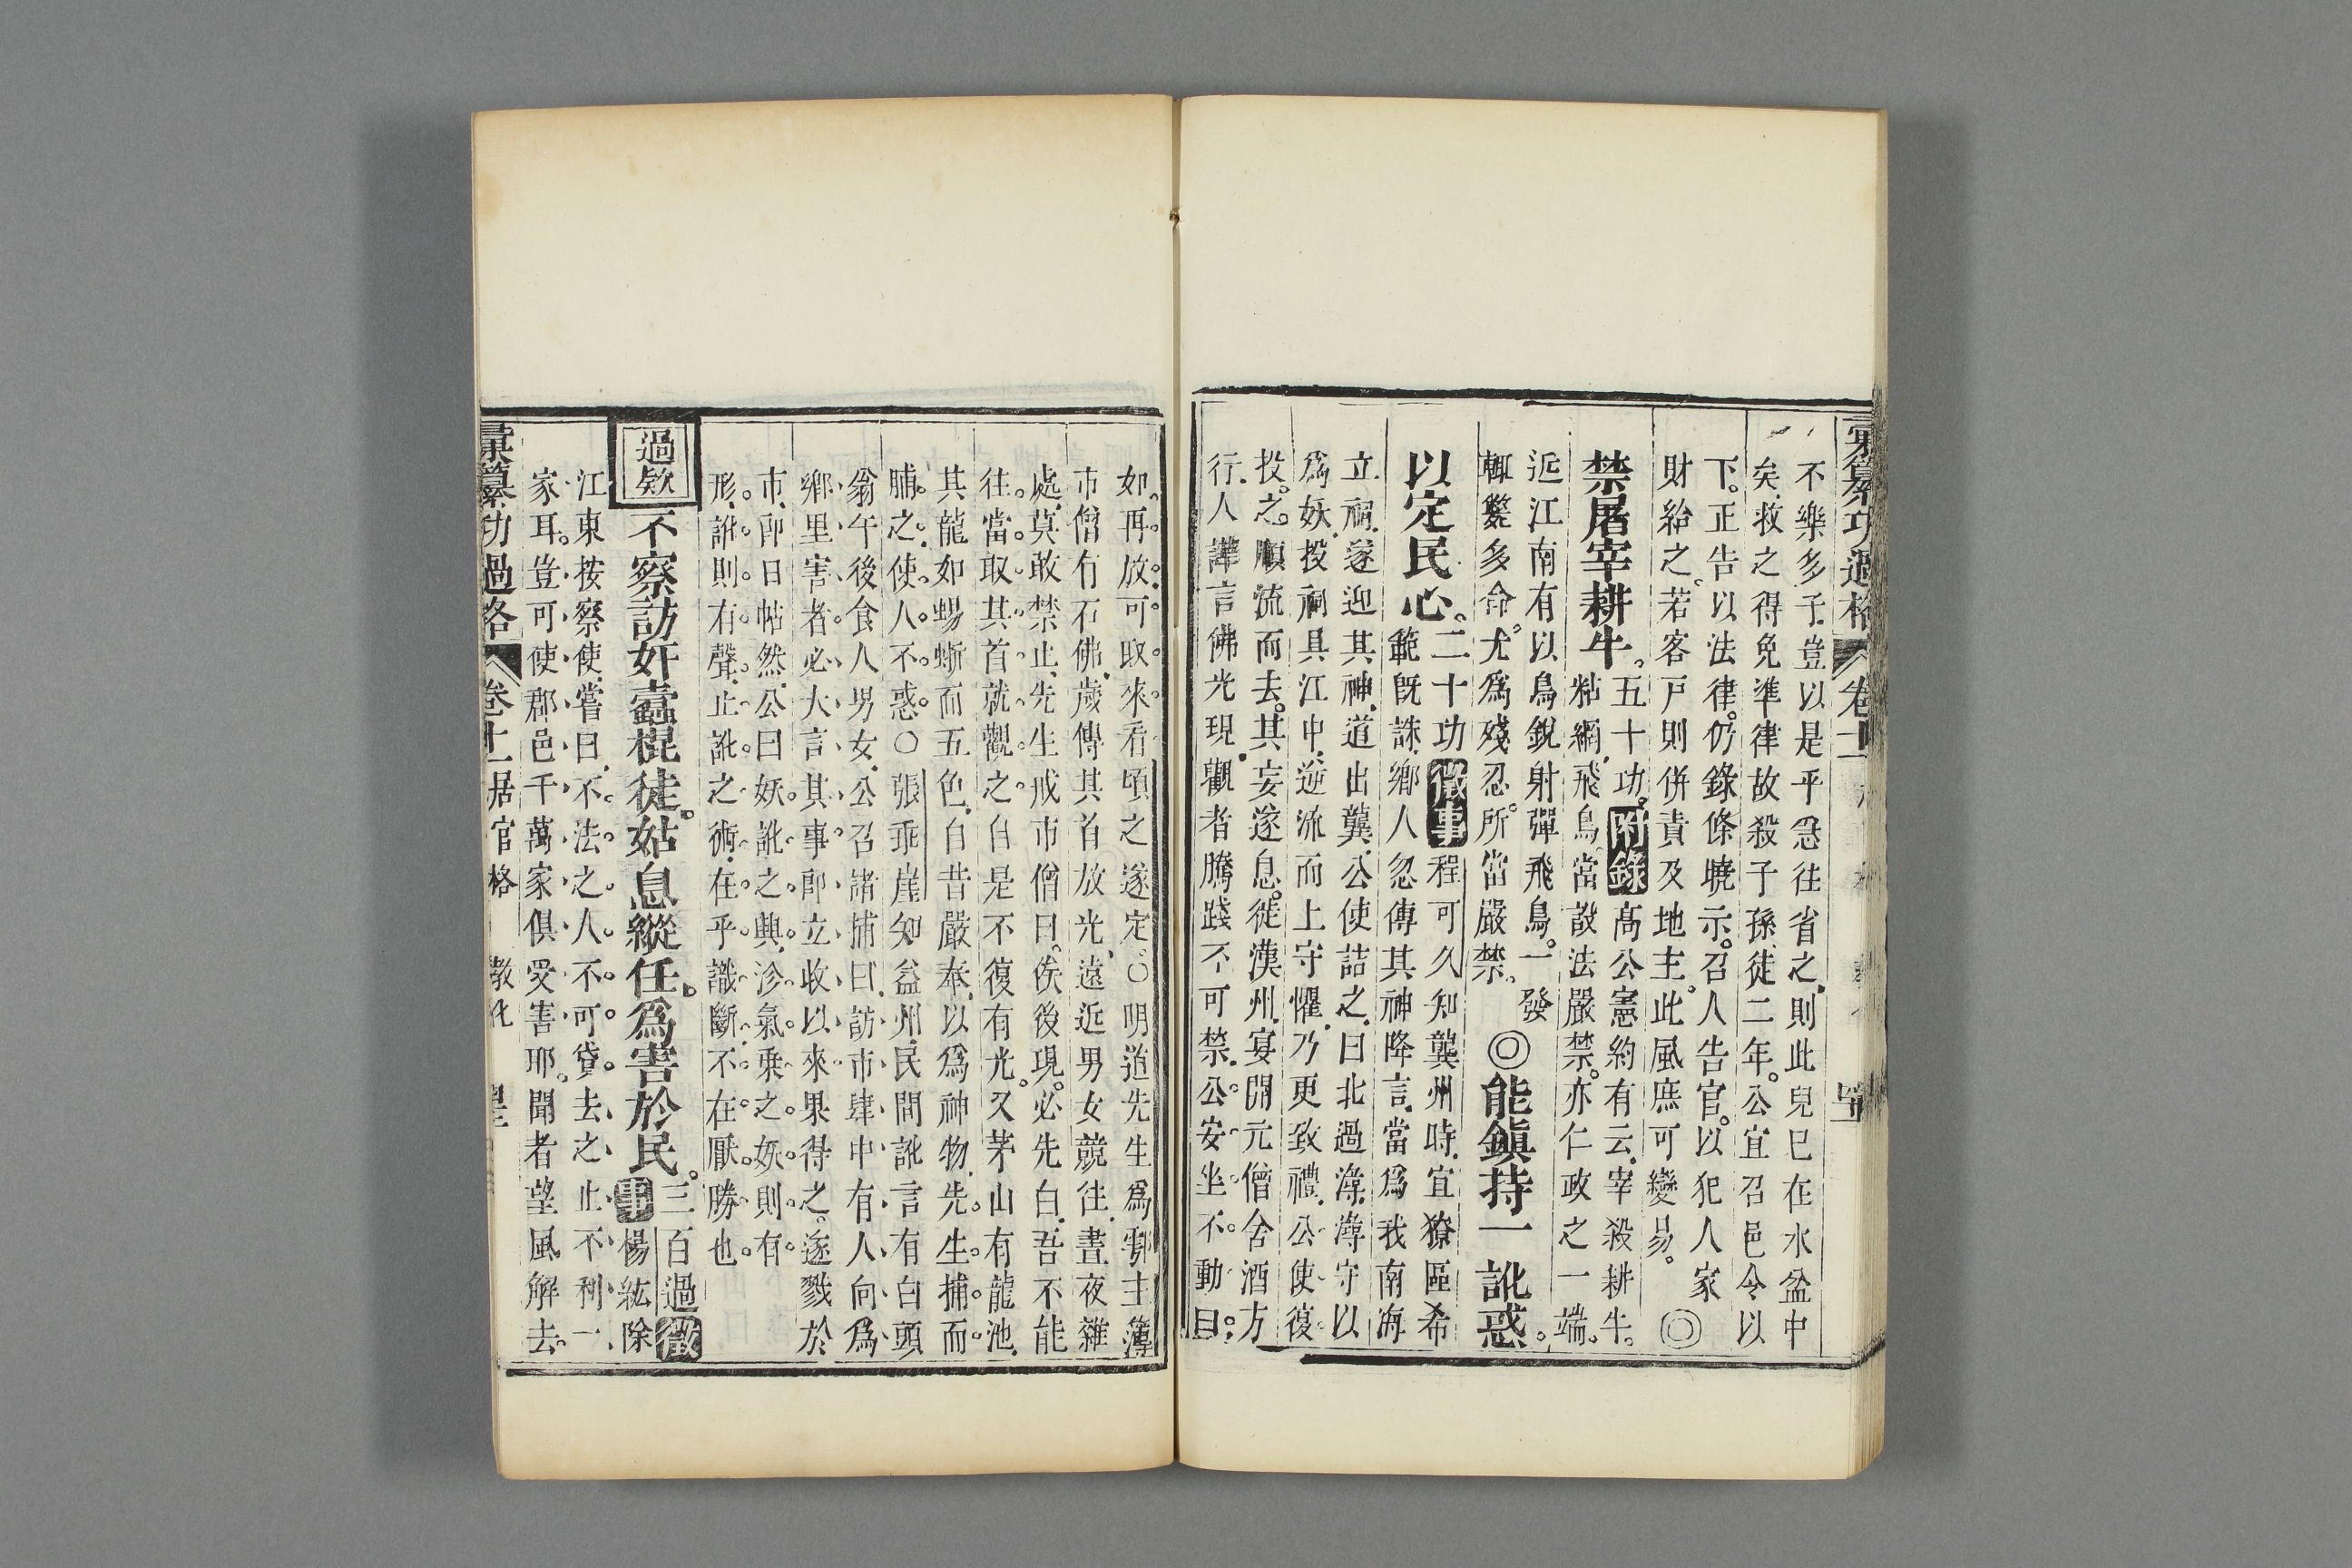 彙纂功過格 卷十一
不樂多子豈以是乎急往省之則此兒已在水盆中
矣救之得免準律故殺子孫徒二年公宜召邑令以
下正告以法律仍錄條曉示召人告官以犯人家
財給之若客戶則併責及地主此風庶可變易◎
禁屠宰耕牛五十功附錄高公憲約有云宰殺耕牛
粘網飛鳥當設法嚴禁亦仁政之一端
近江南有以鳥銳射彈飛鳥一發
輒斃多命尤爲殘忍所當嚴禁◎能鎮持一訛惑
以定民心二十功徵事程可久知龔州時宜獠區希
範旣誅鄉人忽傳其神降言當爲我南海
立祠遂迎其神道出龔公使詰之曰北過潯潯守以
爲妖投祠具江中逆流而上守懼乃更致禮公使復
投之順流而去其妄遂息徙漢州宴開元僧舍酒方
行人譁言佛光現觀者騰踐不可禁公安坐不動曰
如再放可取來看頃之遂定○明道先生爲鄠主簿
市僧有石佛歲傳其首放光遠近男女競往晝夜雜
處莫敢禁止先生戒市僧曰俟後現必先白吾不能
往當取其首就觀之自是不復有光又茅山有龍池
其龍如蜴蜥而五色自昔嚴奉以爲神物先生捕而
脯之使人不惑○張乖崖知益州民間訛言有白頭
翁午後食人男女公召諸捕曰訪市肆中有人向爲
鄉里害者必大言其事即立收以來果得之遂戮於
市即日帖然公曰妖訛之興沴氣乗之妖則有
形訛則有聲止訛之術在乎識斷不在厭勝也
過欵
不察訪奸蠹棍徒姑息縱任爲害於民三百過徵
事楊紘除
江東按察使嘗曰不法之人不可貸去之止不利一
家耳豈可使郡邑千萬家俱受害耶聞者望風解去
彙纂功過格 卷十一居官格 教化